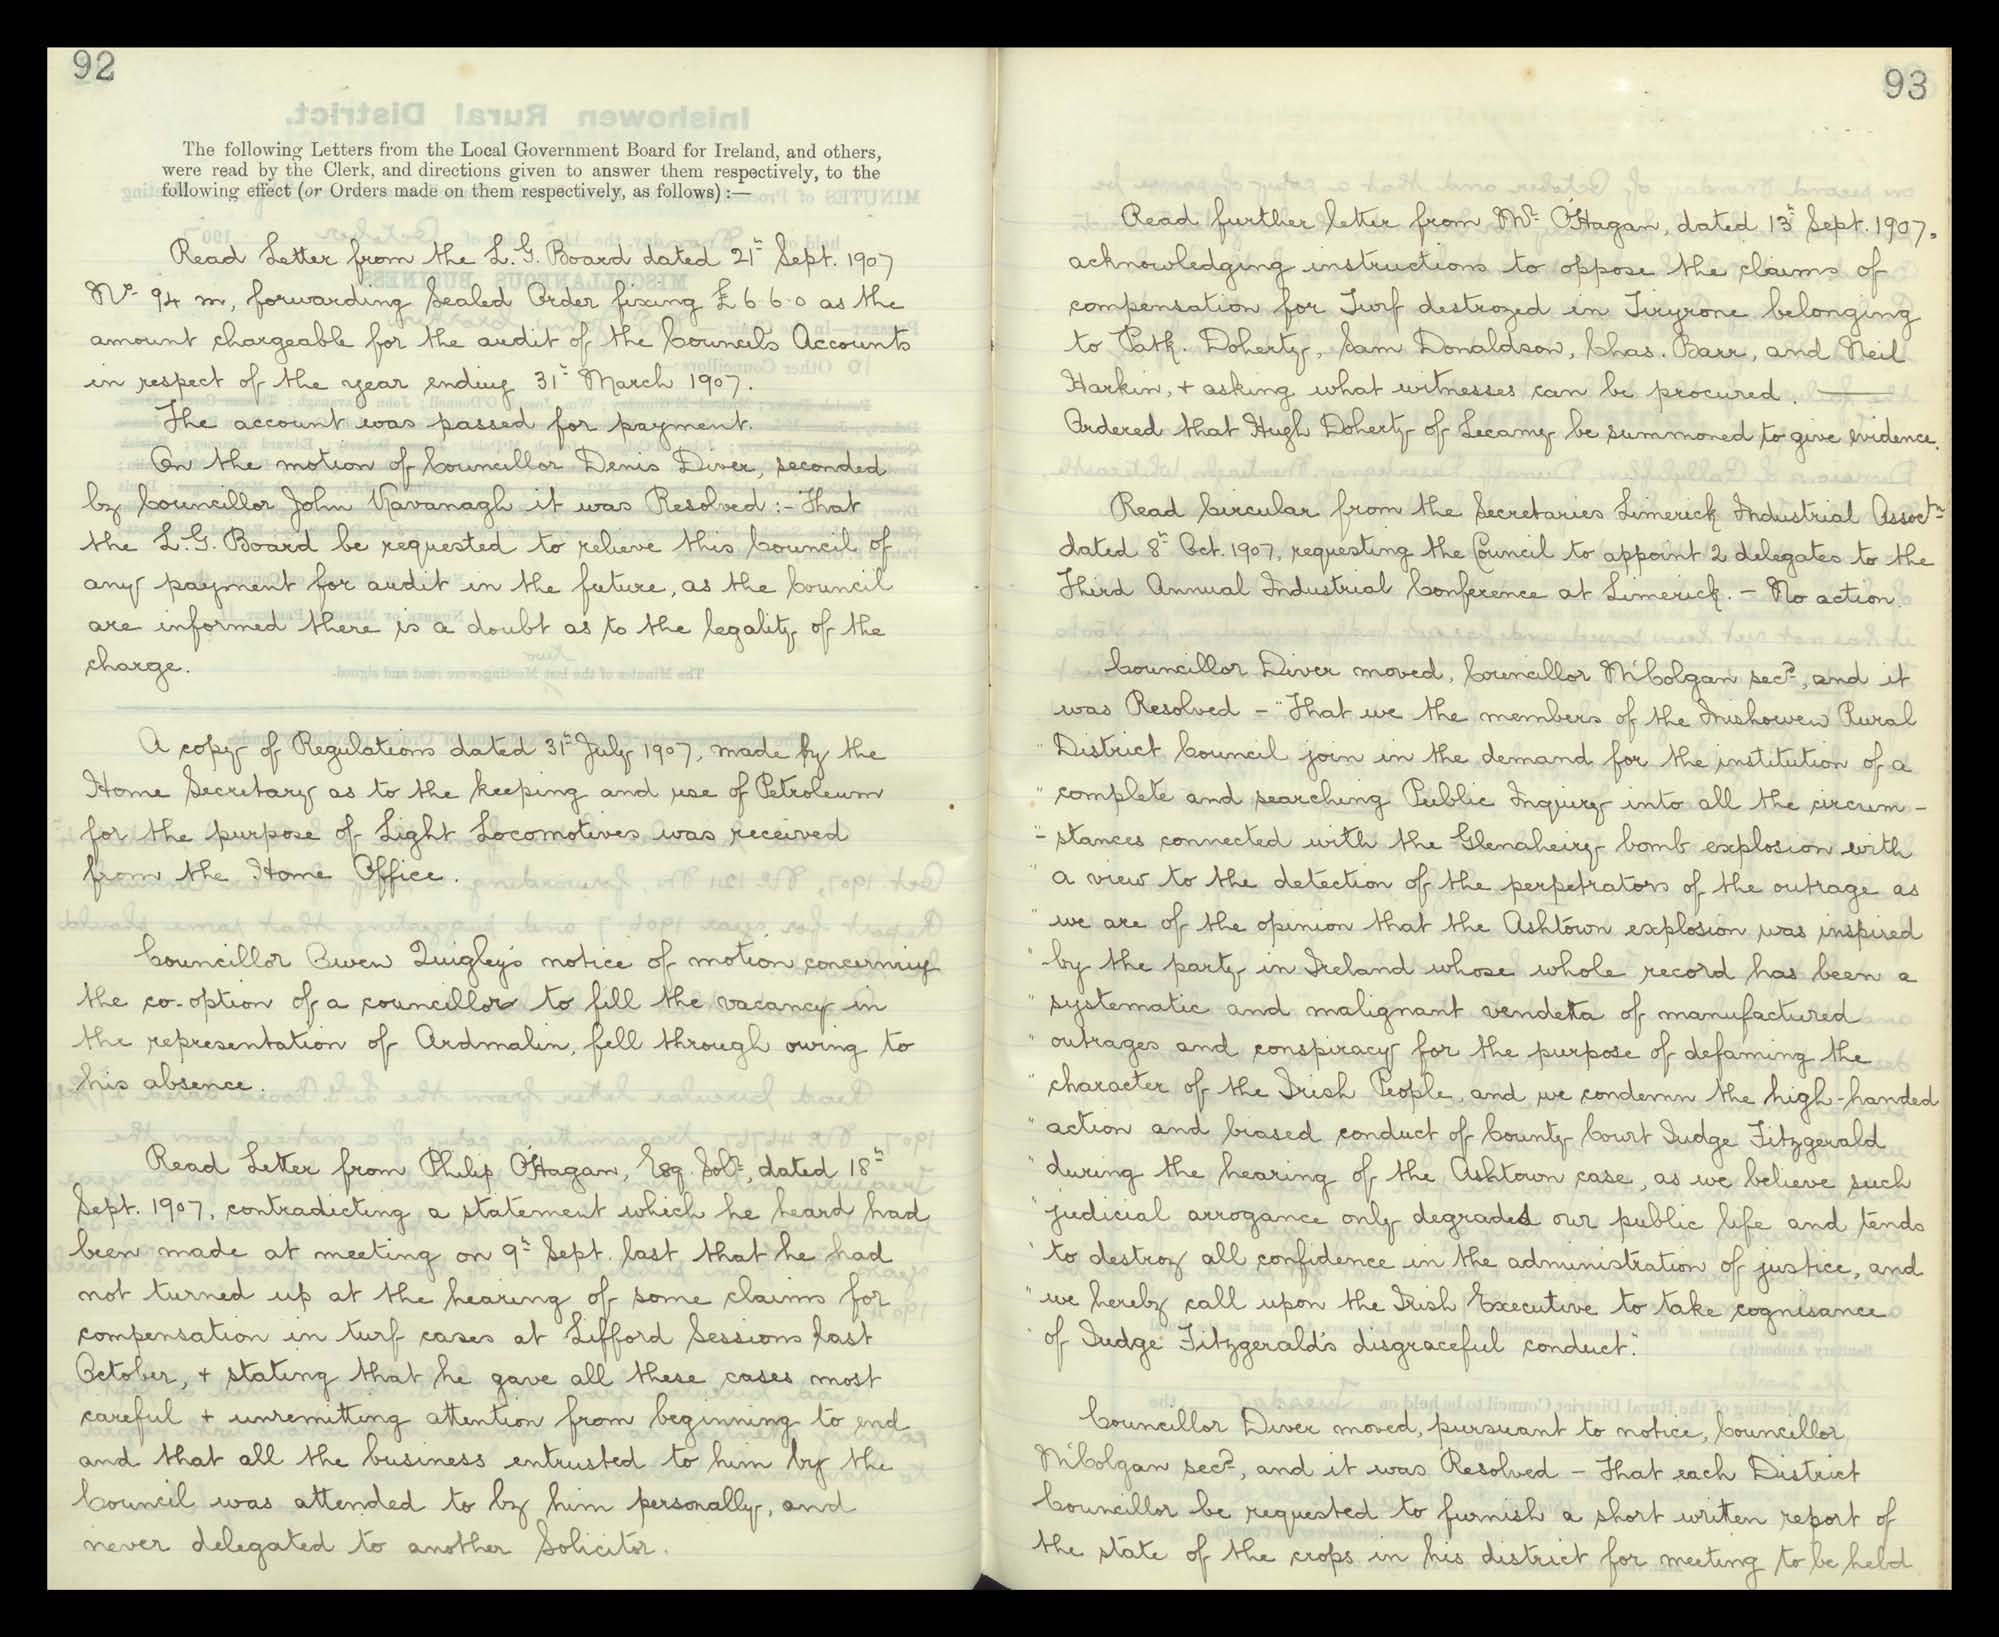 92
The following Letters from the Local Government Board for Ireland, and others,
were read by the Clerk, and directions given to answer them respectively, to the
following effect (or Orders made on them respectively, as follows) :—
Read Letter from the L. G. Board dated 21st Sept. 1907
No. 94 m, forwarding Sealed Order fixing £6 6.0 as the
amount chargeable for the audit of the Councils Accounts
in respect of the year ending 31st March 1907.
The account was passed for payment.
On the motion of Councillor Denis Diver, seconded
by Councillor John Kavanagh it was Resolved :- That
the L. G. Board be requested to relieve this Council of
any payment for audit in the future, as the Council
are informed there is a doubt as to the legality of the
charge.
A copy of Regulations dated 31st July 1907, made by the
Home Secretary as to the keeping and use of Petroleum
for the purpose of Light Locomotives was received
from the Home Office.
Councillor Owen Quigley's notice of motion concerning
the co-option of a councillor to fill the vacancy in
the representation of Ardmalin, fell through owing to
his absence.
Read Letter from Philip O'Hagan, Esq. Solr., dated 18th
Sept. 1907, contradicting a statement which he heard had
been made at meeting on 9th Sept. last that he had
not turned up at the hearing of some claims for
compensation in turf cases at Lifford Sessions last
October, + stating that he gave all these cases most
careful + unremitting attention from beginning to end
and that all the business entrusted to him by the
Council was attended to by him personally, and
never delegated to another Solicitor.
93
Read further letter from Mr. O'Hagan, dated 13th Sept. 1907.
acknowledging instructions to oppose the claims of
compensation for Turf destroyed in Tiryrone belonging
to Patk. Doherty, Sam Donaldson, Chas. Barr, and Neil
Harkin, + asking what witnesses can be procured. —
Ordered that Hugh Doherty of Lecamy be summoned to give evidence.
Read Circular from the Secretaries Limerick Industrial Assoctn
dated 8th Oct. 1907, requesting the Council to appoint 2 delegates to the
Third Annual Industrial Conference at Limerick. - No action.
Councillor Diver moved, Councillor McColgan secd., and it
was Resolved - "That we the members of the Inishowen Rural
" District Council join in the demand for the institution of a
" complete and searching Public Inquiry into all the circum-
"- stances connected with the Glenaheiry bomb explosion with
" a view to the detection of the perpetrators of the outrage as
" we are of the opinion that the Ashtown explosion was inspired
" by the party in Ireland whose whole record has been a
" systematic and malignant vendetta of manufactured
" outrages and conspiracy for the purpose of defaming the
" character of the Irish People, and we condemn the high-handed
" action and biased conduct of County Court Judge Fitzgerald
" during the hearing of the Ashtown case, as we believe such
" judicial arrogance only degrades our public life and tends
" to destroy all confidence in the administration of justice, and
" we hereby call upon the Irish Executive to take cognisance
" of Judge Fitzgerald's disgraceful conduct."
Councillor Diver moved, pursuant to notice, Councillor
McColgan secd., and it was Resolved - That each District
Councillor be requested to furnish a short written report of
the state of the crops in his district for meeting to be held